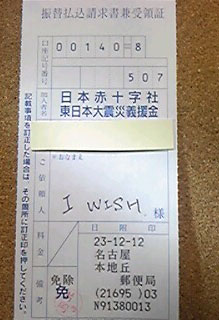 振替払込請求書兼受領証
口座記号番号
00140-8
507
加入者名
日本赤十字社
東日本大震災義援金
※おなまえ
ご依頼人
I WISH 様
料金
日附印
備考
免除
免
23-12-12
名古屋
本地丘
郵便局
(21695)03
N91380013
記載事項を訂正した場合は、その箇所に訂正印を押してください。